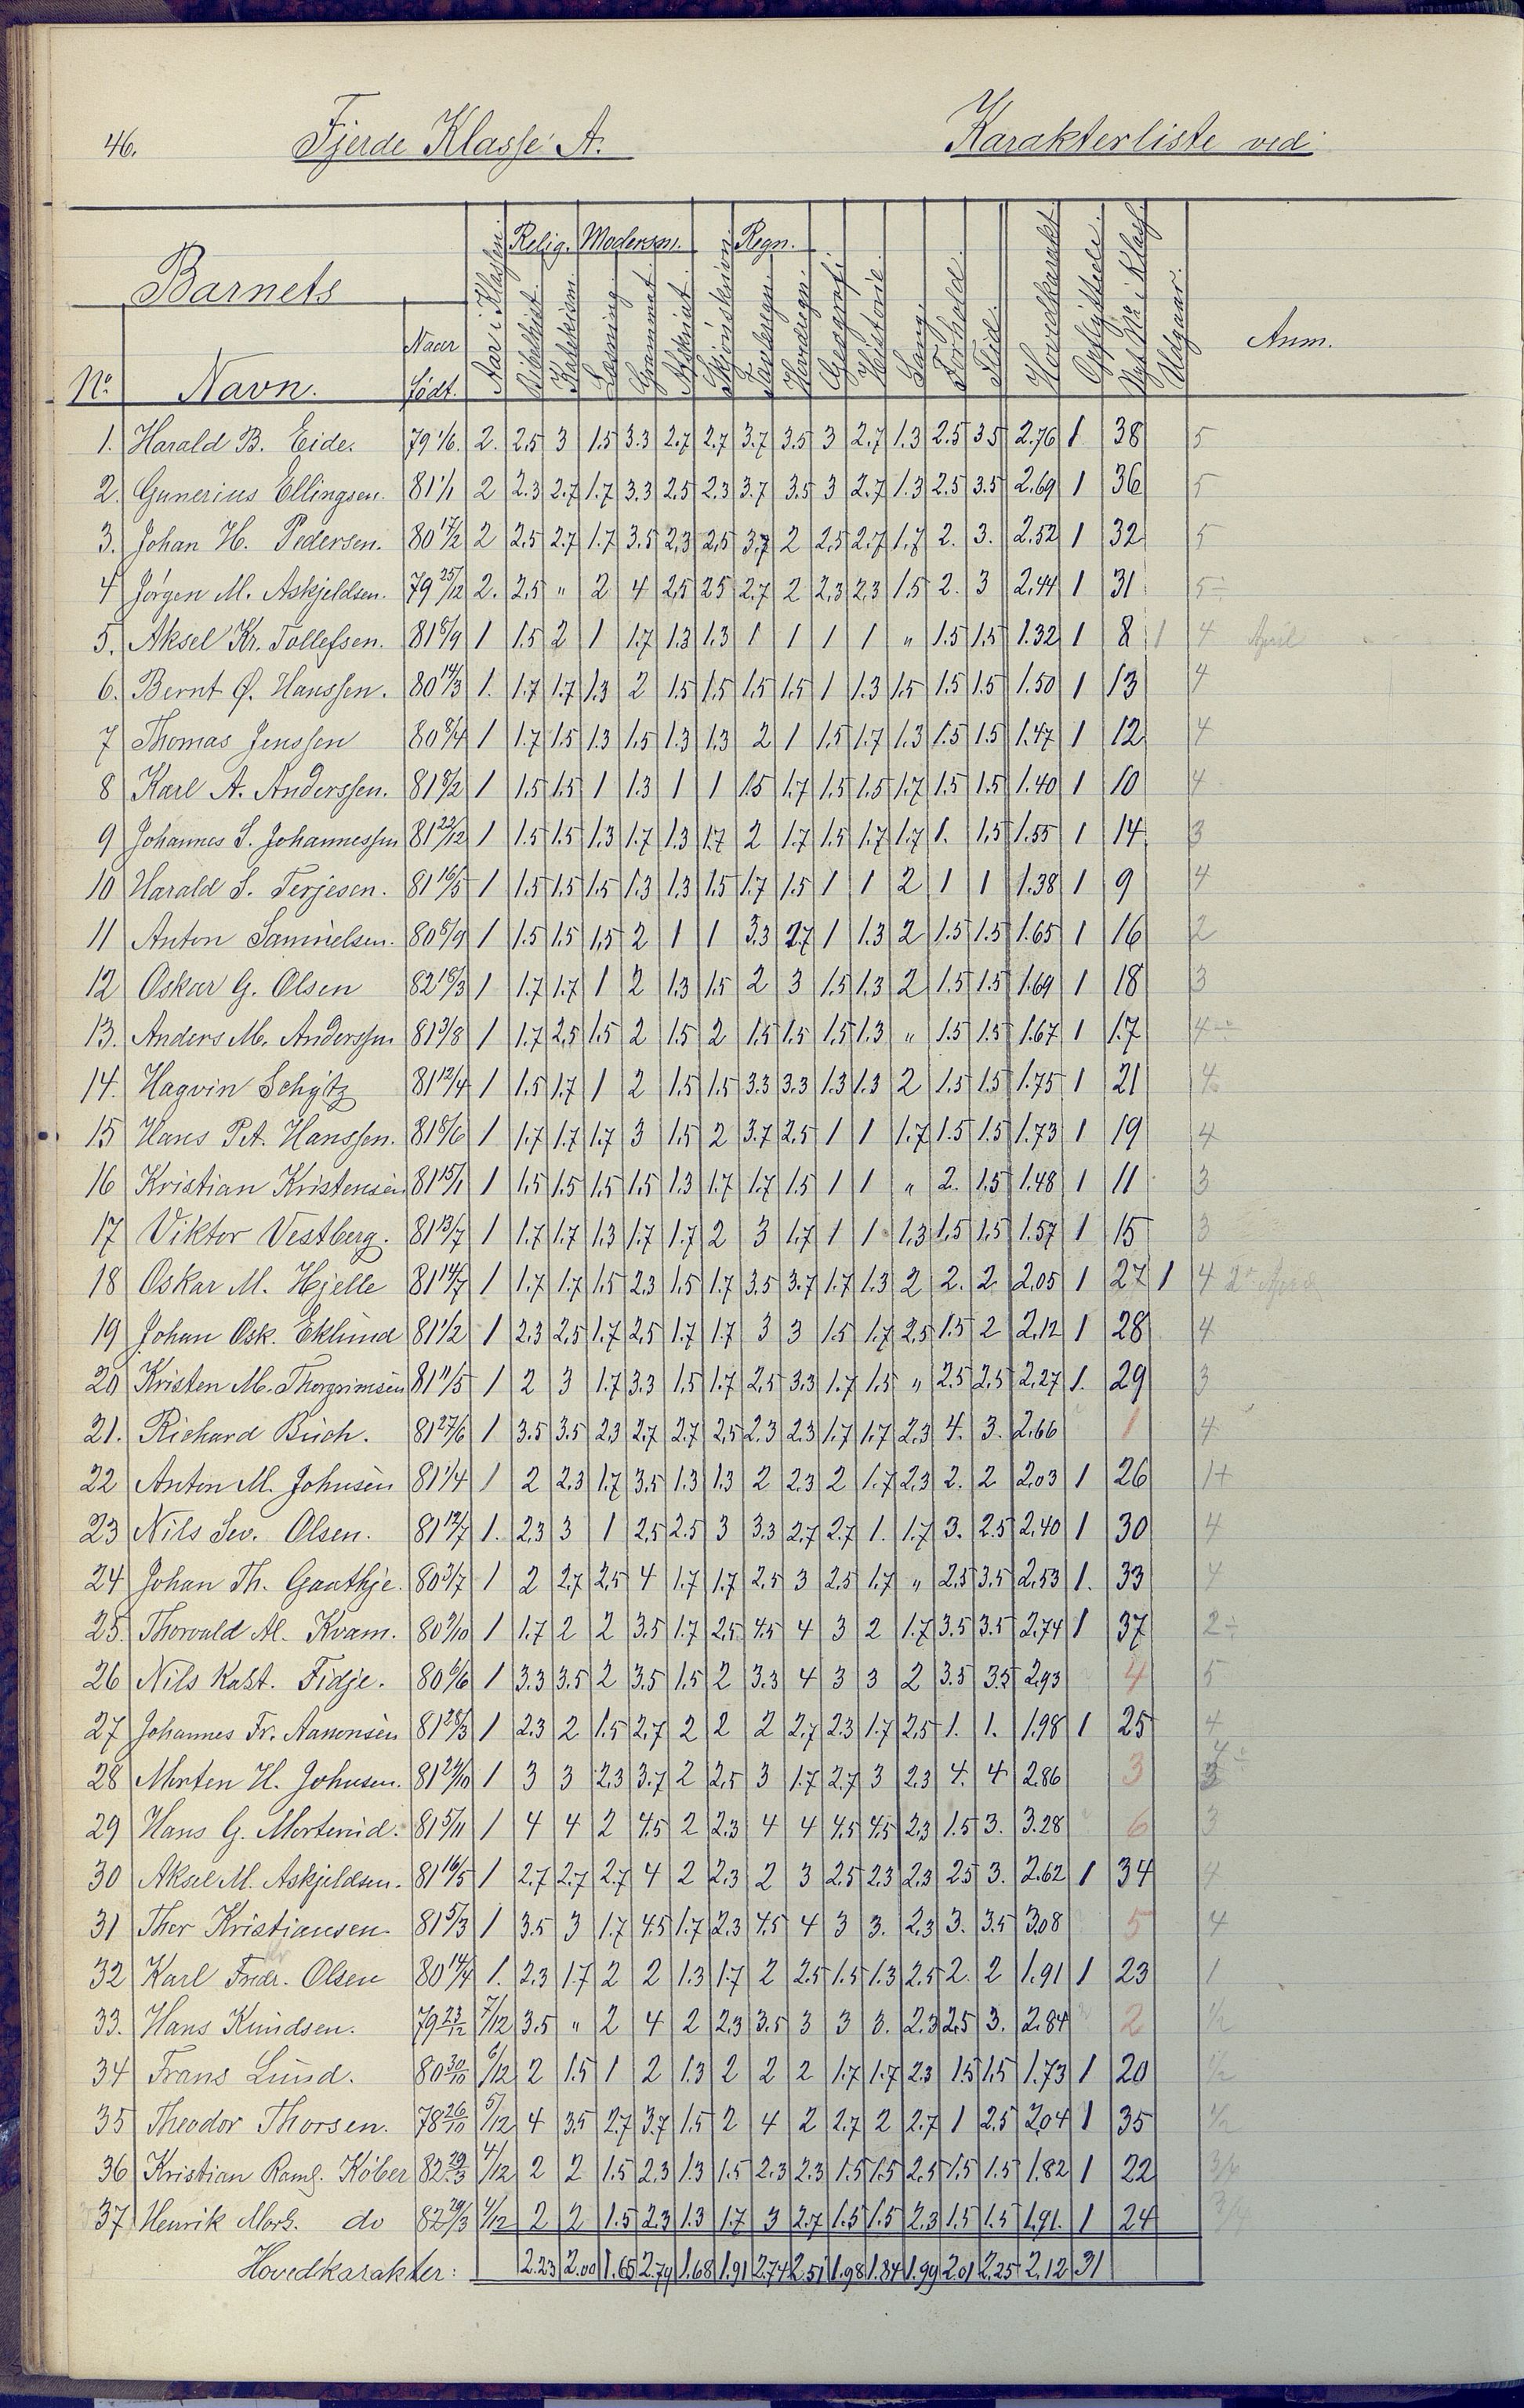 46. Fjerde Klasse A. Karakterliste ved
Barnets Relig. Modersm. Regn.
No Navn. Naar født. Aar i Klassen Bibelhist. Katekism. Læsning Grammat. Retskrivt. Skjönskrivn Tavleregn. Hovedregn. Geografi Historie. Sang. Forhold. Flid. Hovedkarakt. Opflyttede. Nyt No i Klass. Udgaar. Anm.
1. Harald B. Eide. 79 1/6. 2. 2.5 3 1.5 3.3 2.7 2.7 3.7 3.5 3 2.7 1.3 2.5 3.5 2.76 1 38 5
2. Gunerius Ellingsen. 81 1/1 2 2.3 2.7 1.7 3.3 2.5 2.3 3.7 3.5 3 2.7 1.3 2.5 3.5 2.69 1 36 5
3. Johan H. Pedersen. 80 17/2 2 2.5 2.7 1.7 3.5 2.3 2.5 3.7 2 2.5 2.7 1.7 2. 3. 2.52 1 32 5
4 Jørgen M. Askjeldsen. 79 25/12 2. 2.5 " 2 4 2.5 2.5 2.7 2 2.3 2.3 1.5 2. 3 2.44 1 31 5÷
5. Aksel Kr. Tollefsen. 81 8/9 1 1.5 2 1 1.7 1.3 1.3 1 1 1 1 " 1.5 1.5 1.32 1 8 1 4 April
6. Bernt Ø. Hanssen. 80 14/3 1. 1.7 1.7 1.3 2 1.5 1.5 1.5 1.5 1 1.3 1.5 1.5 1.5 1.50 1 13 4
7 Thomas Jenssen 80 8/4 1 1.7 1.5 1.3 1.5 1.3 1.3 2 1 1.5 1.7 1.3 1.5 1.5 1.47 1 12 4
8 Karl A. Anderssen. 81 8/2 1 1.5 1.5 1 1.3 1 1 1.5 1.7 1.5 1.5 1.7 1.5 1.5 1.40 1 10 4
9 Johannes S. Johannessen 81 22/12 1 1.5 1.5 1.3 1.7 1.3 1.7 2 1.7 1.5 1.7 1.7 1. 1.5 1.55 1 14 3
10 Harald S. Terjesen. 81 16/5 1 1.5 1.5 1.5 1.3 1.3 1.5 1.7 1.5 1 1 2 1 1 1.38 1 9 4
11 Anton Samuelsen. 80 8/9 1 1.5 1.5 1.5 2 1 1 3.3 2.7 1 1.3 2 1.5 1.5 1.65 1 16 2
12 Oskar G. Olsen 82 18/3 1 1.7 1.7 1 2 1.3 1.5 2 3 1.5 1.3 2 1.5 1.5 1.69 1 18 3
13. Anders M. Anderssen 81 3/8 1 1.7 2.5 1.5 2 1.5 2 1.5 1.5 1.5 1.3 " 1.5 1.5 1.67 1 17 4÷
14. Hagvin Schytz 81 12/4 1 1.5 1.7 1 2 1.5 1.5 3.3 3.3 1.3 1.3 2 1.5 1.5 1.75 1 21 4
15 Hans P.A. Hanssen. 81 8/6 1 1.7 1.7 1.7 3 1.5 2 3.7 2.5 1 1 1.7 1.5 1.5 1.73 1 19 4
16 Kristian Kristensen 81 15/1 1 1.5 1.5 1.5 1.5 1.3 1.7 1.7 1.5 1 1 " 2. 1.5 1.48 1 11 3
17 Viktor Vestberg. 81 13/7 1 1.7 1.7 1.3 1.7 1.7 2 3 1.7 1 1 1.3 1.5 1.5 1.57 1 15 3
18 Oskar M. Hjelle 81 14/7 1 1.7 1.7 1.5 2.3 1.5 1.7 3.5 3.7 1.7 1.3 2 2. 2 2.05 1 27 1 4
19 Johan Osk. Eklund 81 1/2 1 2.3 2.5 1.7 2.5 1.7 1.7 3 3 1.5 1.7 2.5 1.5 2 2.12 1 28 4
20 Kristen M. Thorgrimsen 81 11/5 1 2 3 1.7 3.3 1.5 1.7 2.5 3.3 1.7 1.5 " 2.5 2.5 2.27 1. 29 3
21. Richard Buch. 81 27/6 1 3.5 3.5 2.3 2.7 2.7 2.5 2.3 2.3 1.7 1.7 2.3 4. 3. 2.66 1 4
22 Anton M. Johnsen 81 1/4 1 2 2.3 1.7 3.5 1.3 1.3 2 2.3 2 1.7 2.3 2. 2 2.03 1 26 1+
23 Nils Sev. Olsen. 81 12/7 1. 2.3 3 1 2.5 2.5 3 3.3 2.7 2.7 1. 1.7 3. 2.5 2.40 1 30 4
24 Johan Th. Gaathje. 80 3/7 1 2 2.7 2.5 4 1.7 1.7 2.5 3 2.5 1.7 " 2.5 3.5 2.53 1. 33 4
25. Thorvald Al. Kvam. 80 9/10 1 1.7 2 2 3.5 1.7 2.5 4.5 4 3 2 1.7 3.5 3.5 2.74 1 37 2÷
26 Nils Kast. Fidje. 80 6/6 1 3.3 3.5 2 3.5 1.5 2 3.3 4 3 3 2 3.5 3.5 2.93 4 5
27 Johannes Fr. Aanonsen 81 28/3 1 2.3 2 1.5 2.7 2 2 2 2.7 2.3 1.7 2.5 1. 1. 1.98 1 25 4
28 Morten H. Johnsen. 81 24/10 1 3 3 2.3 3.7 2 2.5 3 1.7 2.7 3 2.3 4. 4 2.86 3
29 Hans G. Mortenid. 81 5/11 1 4 4 2 4.5 2 2.3 4 4 4.5 4.5 2.3 1.5 3. 3.28 6 3
30 Aksel M. Askjeldsen. 81 16/5 1 2.7 2.7 2.7 4 2 2.3 2 3 2.5 2.3 2.3 2.5 3. 2.62 1 34 4
31 Thor Kristiansen. 81 5/3 1 3.5 3 1.7 4.5 1.7 2.3 4.5 4 3 3. 2.3 3. 3.5 3.08 5 4
32 Karl Fredr. Olsen 80 14/4 1. 2.3 1.7 2 2 1.3 1.7 2 2.5 1.5 1.3 2.5 2. 2 1.91 1 23 1
33. Hans Knudsen. 79 23/12 7/12 3.5 " 2 4 2 2.3 3.5 3 3 3. 2.3 2.5 3. 2.84 2 1/2
34 Frans Lund. 80 30/10 6/12 2 1.5 1 2 1.3 2 2 2 1.7 1.7 2.3 1.5 1.5 1.73 1 20 1/2
35 Theodor Thorsen. 78 26/10 5/12 4 3.5 2.7 3.7 1.5 2 4 2 2.7 2 2.7 1 2.5 2.04 1 35 1/2
36 Kristian Rams. Köber 82 29/3 4/12 2 2 1.5 2.3 1.3 1.5 2.3 2.3 1.5 1.5 2.5 1.5 1.5 1.82 1 22
37 Henrik Mors. do 82 29/3 4/12 2 2 1.5 2.3 1.3 1.7 3 2.7 1.5 1.5 2.3 1.5 1.5 1.91. 1 24
Hovedkarakter: 2.23 2.00 1.65 2.74 1.68 1.91 2.74 2.51 1.98 1.84 1.99 2.01 2.25 2.12 31